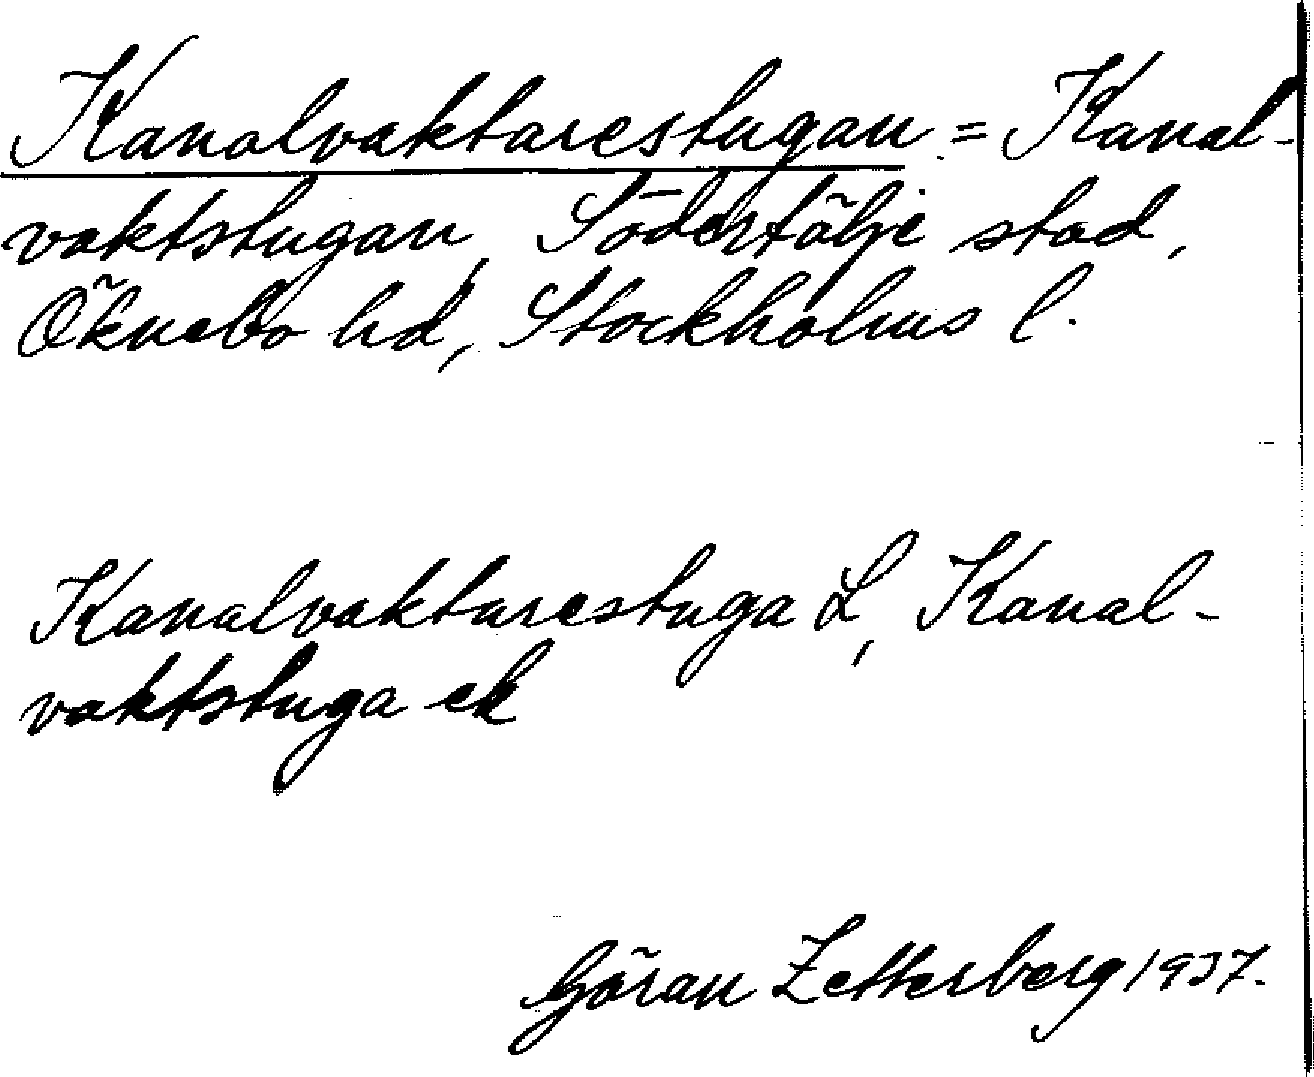 Kanalvaktarestugan = Kanal-
vaktstugan, Södertälje stad,
Öknebo hd, Stockholms l.
Kanalvaktarestuga L, Kanal-
vaktstuga ek
Göran Zetterberg 1937.